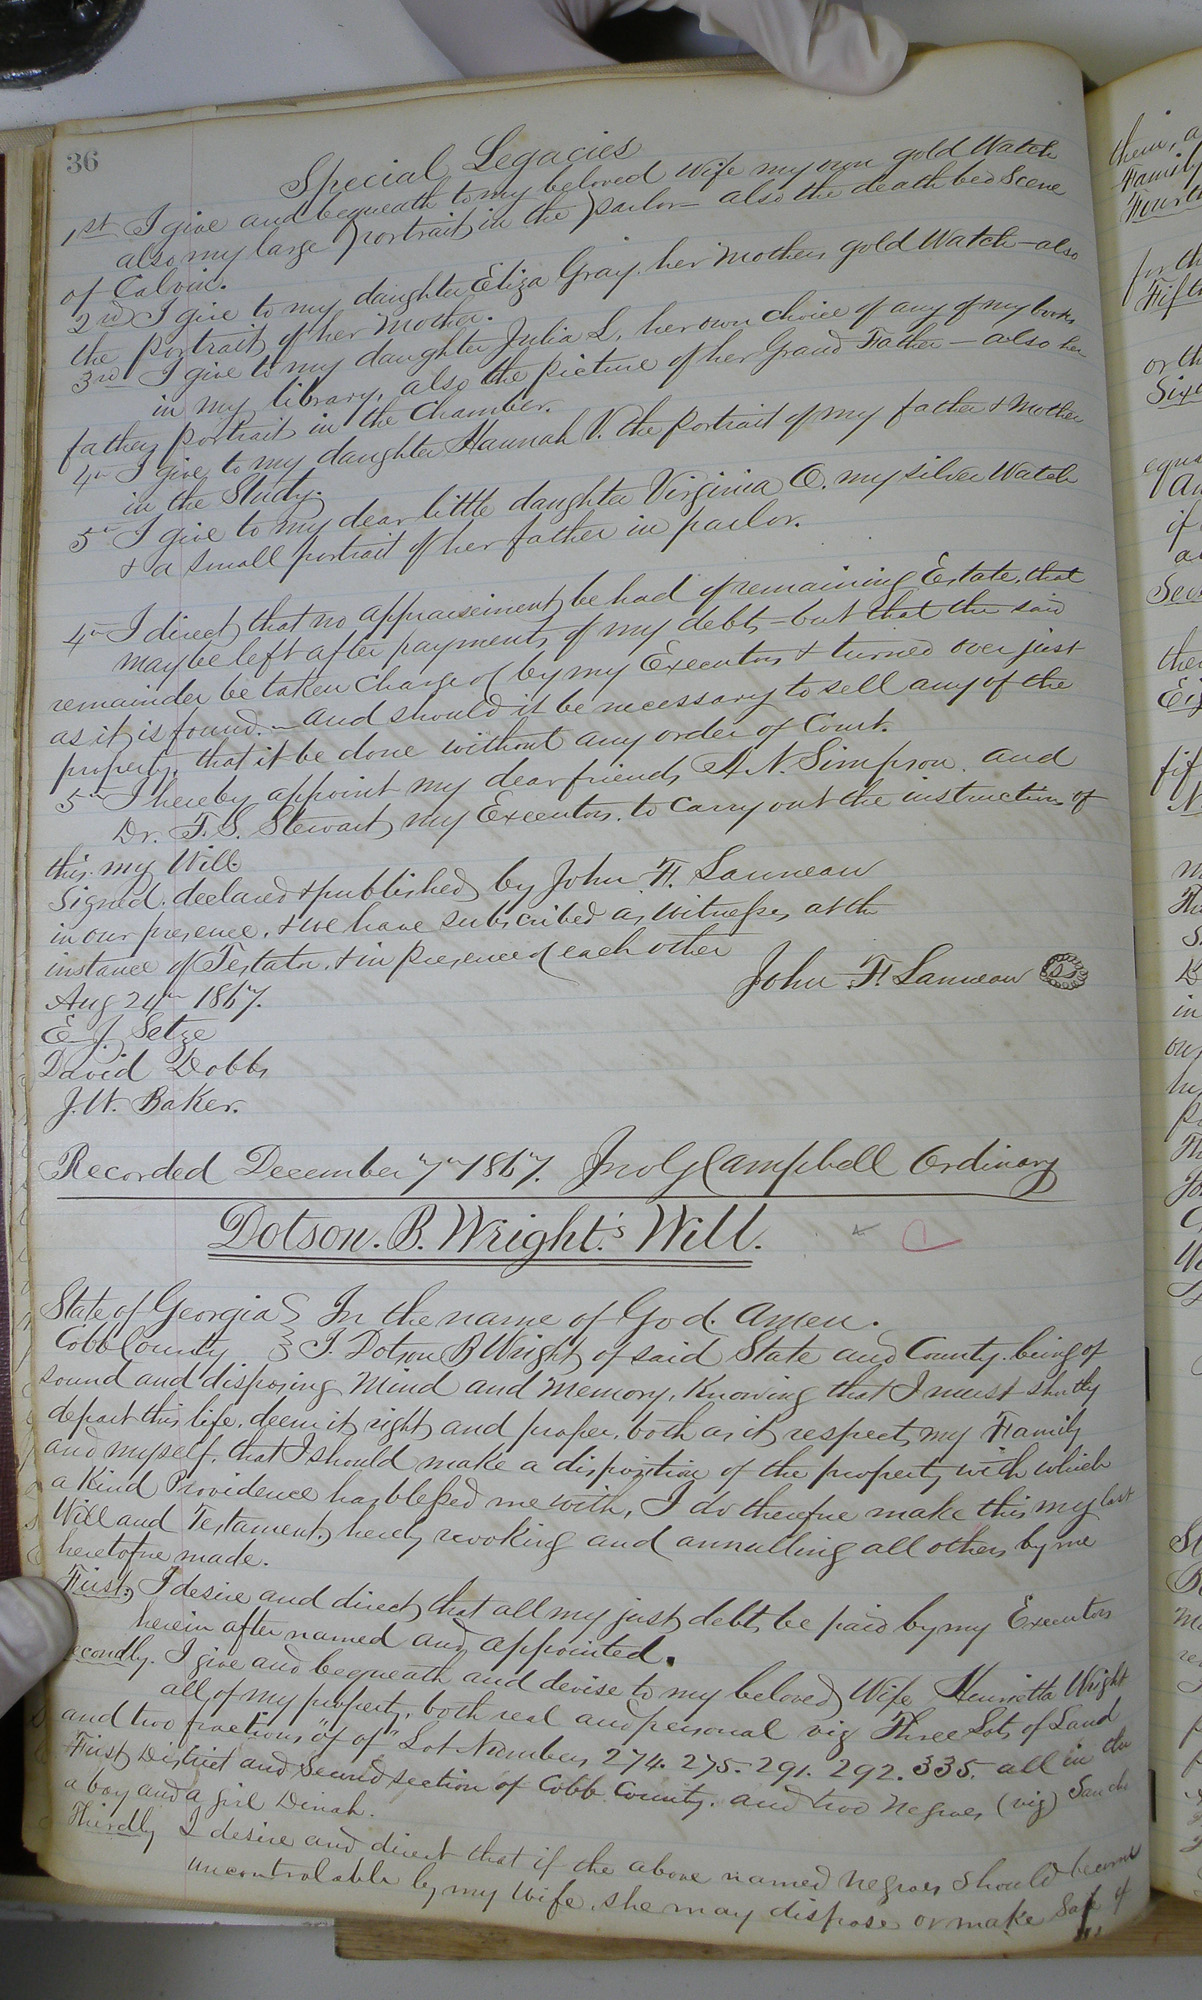 36
Special Legacies
1st I give and bequeath to my beloved Wife my own gold Watch
also my large portrait in the parlor – also the death bed Scene
of Calvin.
2nd I give to my daughter Eliza Gray, her Mothers gold Watch – also
the portrait of her Mother.
3rd I give to my daughter Julia L. her own choice of any of my books
in my library, also the picture of her Grand Father – also her
fathers portrait in the Chamber.
4th I give to my daughter Hannah V. the portrait of my father & Mother
in the Study.
5th I give to my dear little daughter Virginia O. my silver Watch
& a small portrait of her father in parlor.
4th I direct that no appraisement be had of remaining Estate, that
may be left after payments of my debts – but that the said
remainder be taken charge of by my Executors & turned over just
as it is found. – and should it be necessary to sell any of the
property, that it be done without any order of Court.
5th I hereby appoint my dear friends A. N. Simpson, and
Dr. T. S. Stewart my Executors, to carry out the instructions of
this my Will.
Signed, declared & published by John F. Lanneau
in our presence, & we have subscribed as witnesses at the
instance of Testator, & in presence of each other
John F. Lanneau LS
Aug 24th 1867.
E. J. Setze
David Dobbs
J. W. Baker.
Recorded December 7th 1867. Jno G Campbell Ordinary
Dotson. B. Wright's Will.
State of Georgia } In the name of God. Amen.
Cobb County } I. Dotson B Wright of said State and County being of
sound and disposing Mind and Memory, Knowing that I must shortly
depart this life, deem it right and proper, both as it respects my Family
and myself, that I should make a disposition of the property with which
a Kind Providence has blessed me with, I do therefore make this my last
Will and Testament, hereby revoking and annulling all others by me
heretofore made.
First, I desire and direct that all my just debts be paid by my Executors
herein after named and appointed.
econdly. I give and bequeath and devise to my beloved Wife Henrietta Wright
all of my property, both real and personal viz Three Lots of Land
and two fractions "of of" Lot Numbers 274. 275. 291. 292. 335. all in the
First District and Second section of Cobb County. and two negroes (viz)
a boy and a girl Dinah.
Thirdly I desire and direct that if the above named negroes should become
uncontrolable by my Wife, she may dispose or make Sale of